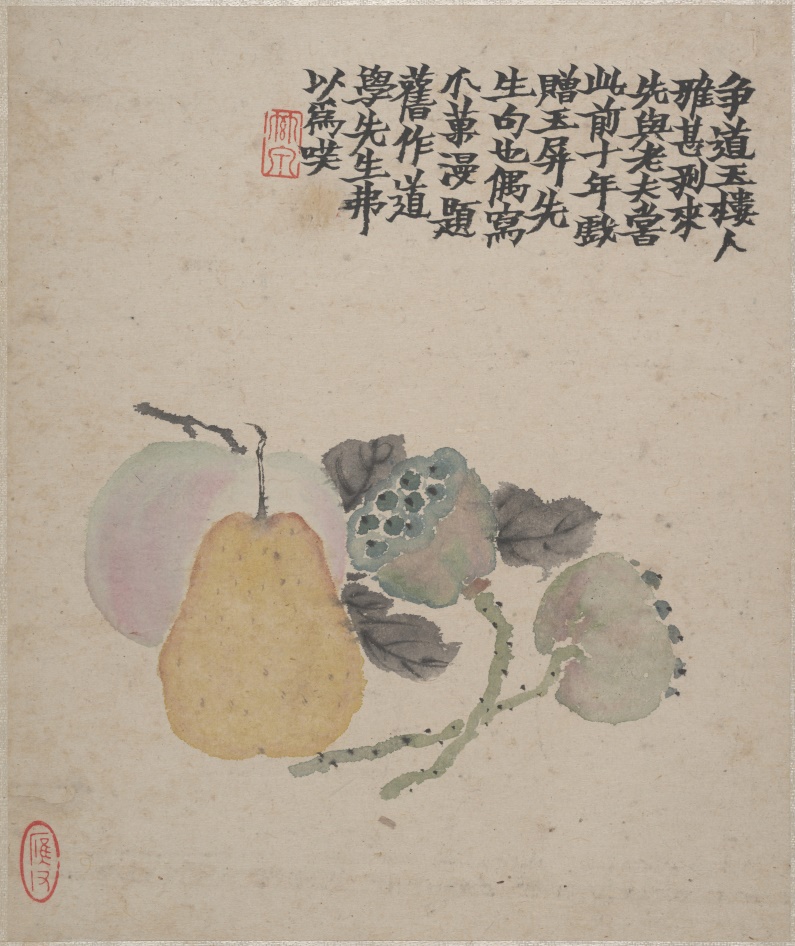 争道玉樓人
雅甚剥來
先與老夫嘗
此前十年戲
贈玉屏先
生句也偶寫
水菓漫題
舊作道
學先生弗
以爲咲